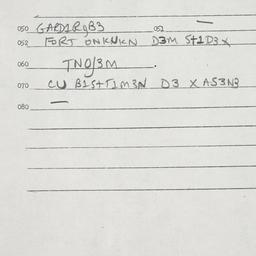 050 GARD1RGB3 051
052 FORT ONKNKN D3M St1D3X
060 TNO/3M .
070 CU B1St T1M3N D3 X AS3N3
080